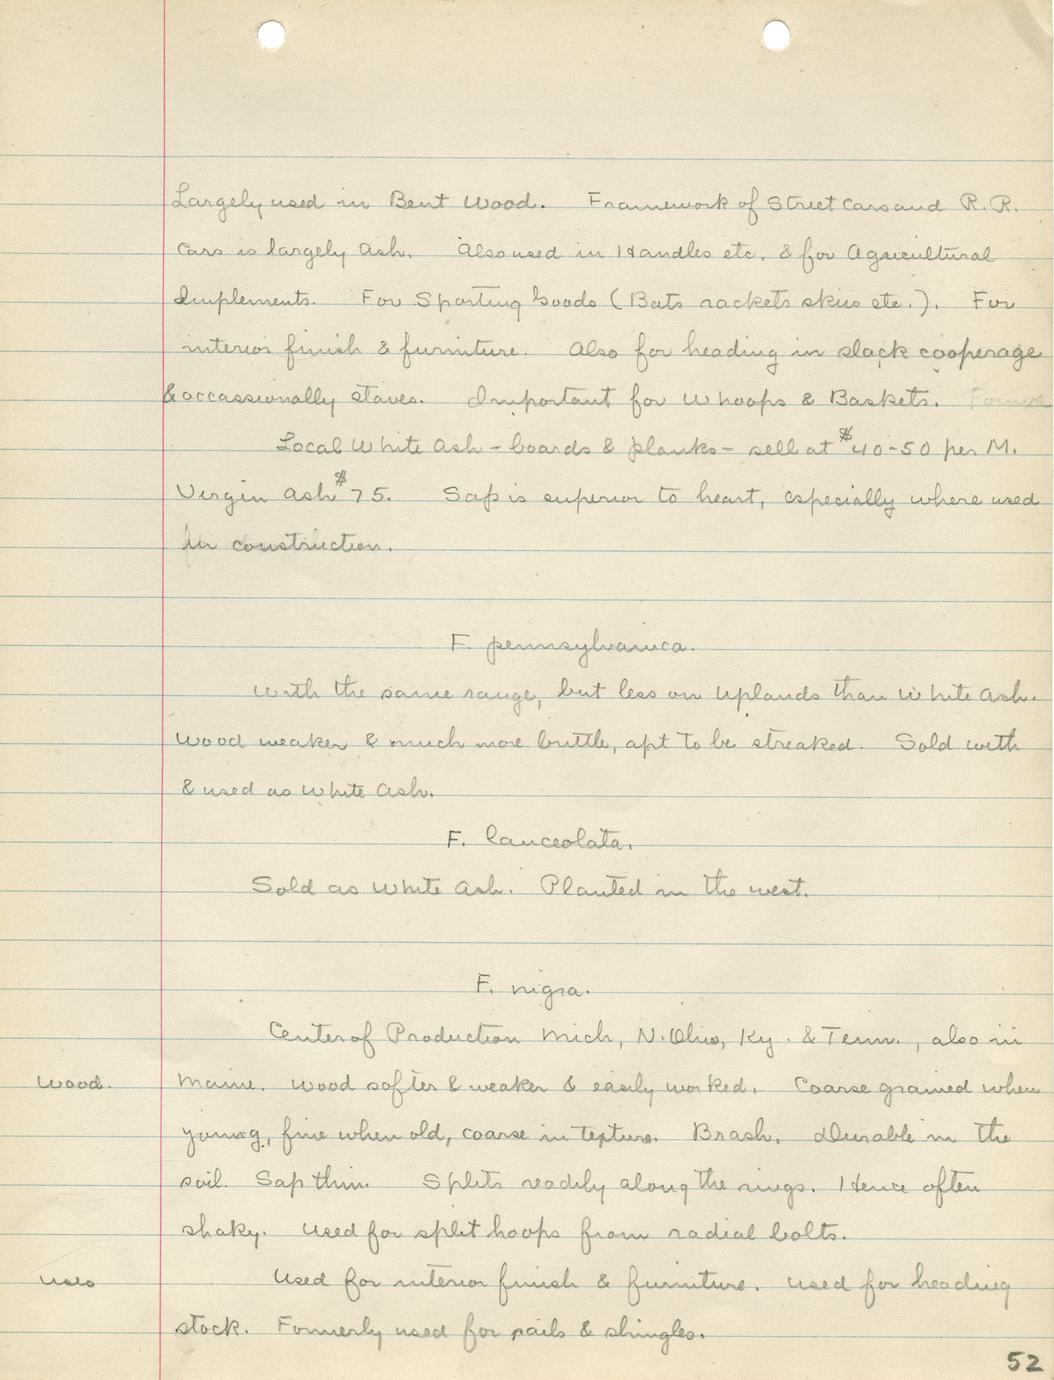 Largely used in Bent Wood. Framework of Street Cars and R.R.
Cars is largely Ash. Also used in Handles etc. & for Agricultural
Implements. For Sporting Goods (Bats rackets skiis etc.). For
interior finish & furniture. Also for heading in slack cooperage
& occassionally staves. Important for Whoops & Baskets.
Local White Ash - boards & planks - sell at $40-50 per M.
Virgin Ash $75. Sap is superior to heart, especially where used
in construction.
F. pennsylvanica.
With the same range, but less on Uplands than White Ash.
Wood weaker & much more brittle, apt to be streaked. Sold with
& used as White Ash.
F. lanceolata.
Sold as White Ash. Planted in the west.
F. nigra.
Center of Production Mich, N. Ohio, Ky. & Tenn., also in
Wood. Maine. Wood softer & weaker & easily worked. Coarse grained when
young, fine when old, coarse in texture. Brash. Durable in the
soil. Sap thin. Splits readily along the rings. Hence often
shaky. Used for split hoops from radial bolts.
Uses Used for interior finish & furniture. Used for heading
stock. Formerly used for pails & shingles.
52